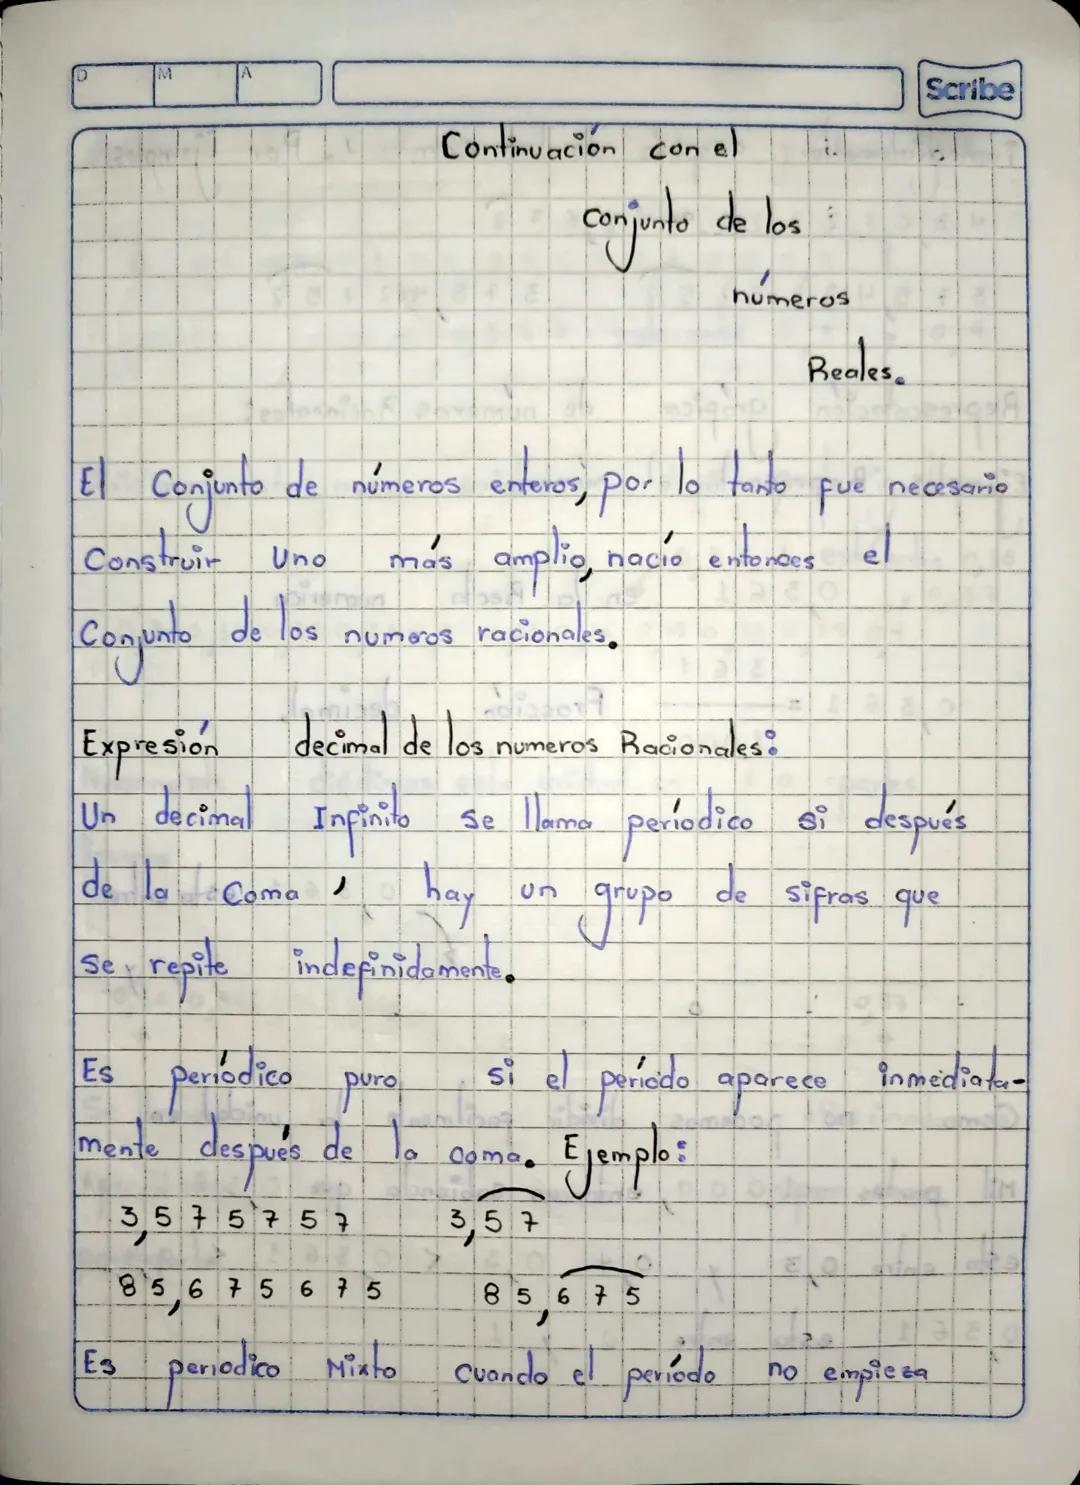 D M A
Scribe
Continuación con el
conjunto de los
números
Reales.
El Conjunto de números enteros, por lo tanto fue necesario
Construir Uno más amplio, nació entonces el
Conjunto de los numeros racionales.
Expresión decimal de los numeros Racionales:
Un decimal Infinito se llama períodico si después
de la Coma , hay un grupo de sifras que
se repite indefinidamente.
Es períodico puro si el período aparece inmediata-
mente después de la coma. Ejemplo:
3,575757 3,57
85,675675 85,675
Es periodico Mixto Cuando el período no empieza